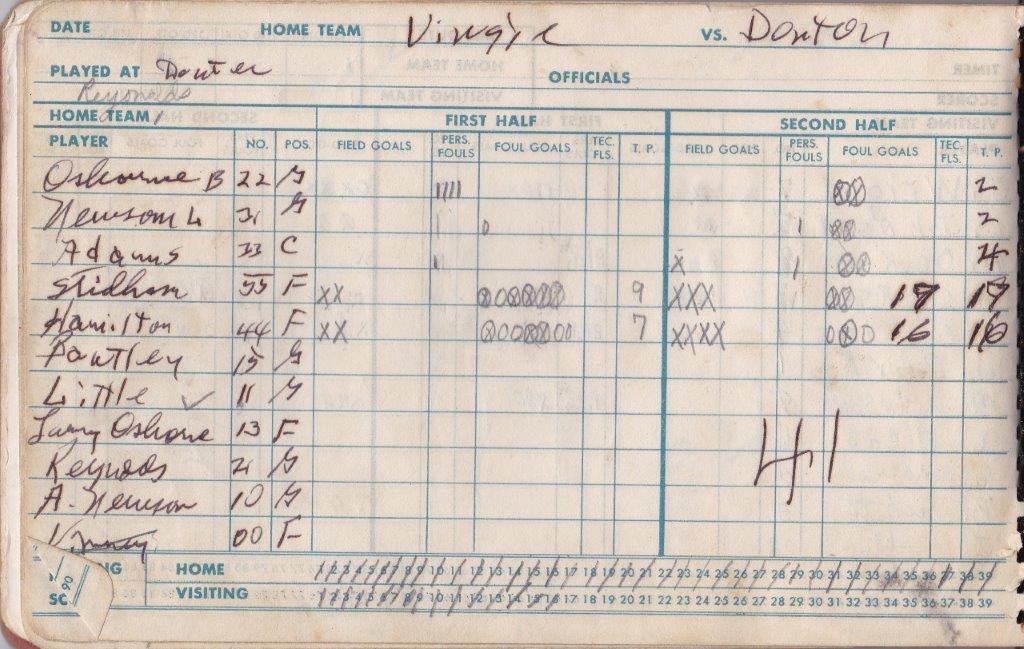 DATE HOME TEAM Virgie VS. Dorton
PLAYED AT Dorton OFFICIALS
Reynolds
HOME TEAM FIRST HALF SECOND HALF
PLAYER NO. POS. FIELD GOALS PERS. FOULS FOUL GOALS TEC. FLS. T. P. FIELD GOALS PERS. FOULS FOUL GOALS TEC. FLS. T. P.
Osbourne B 22 G 2
Newsom L 31 G 2
Adams 33 C X 4
Stidham 55 F XX 9 XXX 17 17
Hamilton 44 F XX 7 XXXX 16 16
Bartley 15 G
Little ✓ 11 G
Larry Osborne 13 F
41
Reynolds 21 G
A. Newsom 10 G
00 F
NG HOME 1 2 3 4 5 6 7 8 9 10 11 12 13 14 15 16 17 18 19 20 21 22 23 24 25 26 27 28 29 30 31 32 33 34 35 36 37 38 39
SC VISITING 1 2 3 4 5 6 7 8 9 10 11 12 13 14 15 16 17 18 19 20 21 22 23 24 25 26 27 28 29 30 31 32 33 34 35 36 37 38 39